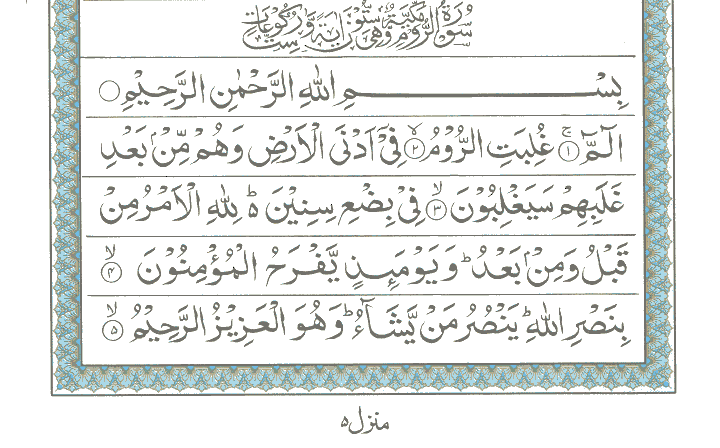 سُوْرَةُ الرُّوْمِ مَكِّيَّةٌ وَّهِىَ سِتُّوْنَ اٰيَةً وَّ سِتُّ رُكُوْعَاتٍ
بِسْمِ اللهِ الرَّحْمٰنِ الرَّحِيْمِ ۝
الٓمّٓ ۚ﴿۱﴾ غُلِبَتِ الرُّوْمُ ۙ﴿۲﴾ فِيْۤ اَدْنَى الْاَرْضِ وَهُمْ مِّنْۢ بَعْدِ
غَلَبِهِمْ سَيَغْلِبُوْنَ ۙ﴿۳﴾ فِيْ بِضْعِ سِنِيْنَ ؕ۬ لِلّٰهِ الْاَمْرُ مِنْ
قَبْلُ وَمِنْۢ بَعْدُ ؕ وَيَوْمَئِذٍ يَّفْرَحُ الْمُؤْمِنُوْنَ ۙ﴿۴﴾
بِنَصْرِ اللهِ ؕ يَنْصُرُ مَنْ يَّشَآءُ ؕ وَهُوَ الْعَزِيْزُ الرَّحِيْمُ ۙ﴿۵﴾
منزل ۵